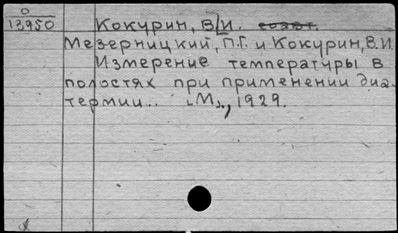 О
13950
Кокурин, В.И. соавт.
Мезерницкий, П.Г. и Кокурин, В.И.
Измерение температуры в
полостях при применении диа-
термии.. [М.], 1929.